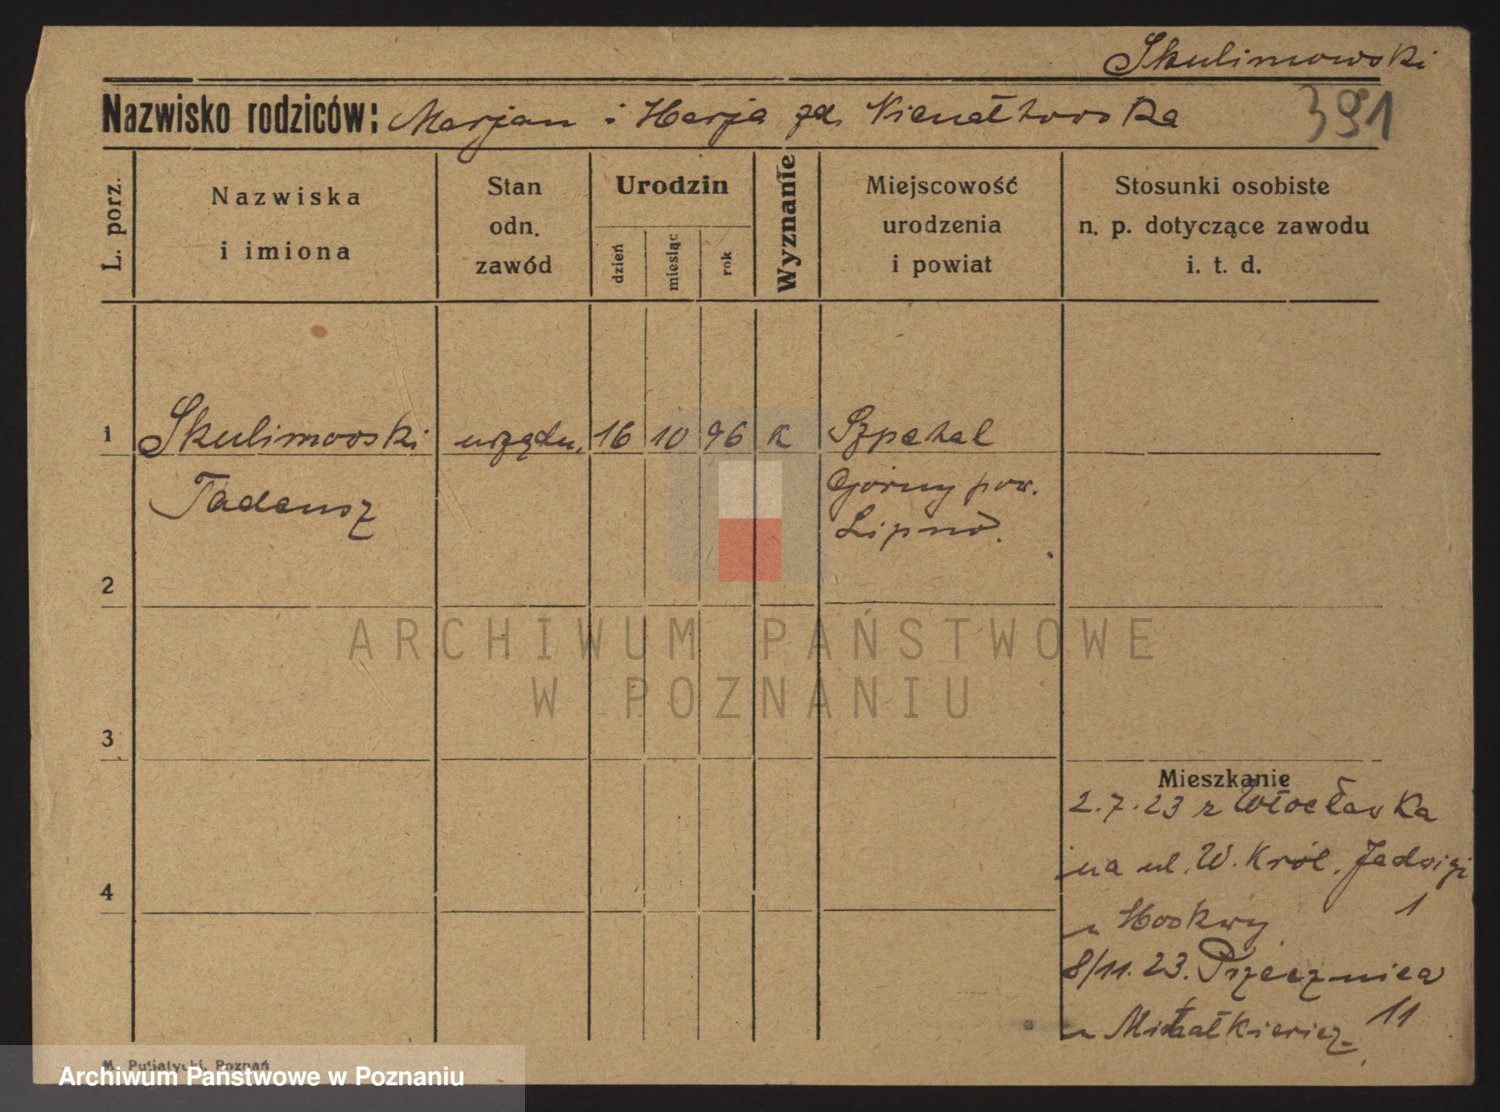 Skulimowski
391
Nazwisko rodziców: Marjan i Marja zd. Nienałtowska
L. porz.
Nazwiska
i imiona
Stan
odn.
zawód
Urodzin
dzień
miesiąc
rok
Wyznanie
Miejscowość
urodzenia
i powiat
Stosunki osobiste
n. p. dotyczące zawodu
i. t. d.
1 Skulimowski urzędn. 16 10 96 k Szpetal
Tadeusz Górny pow.
Lipno.
2
ARCHIWUM PAŃSTWOWE
W POZNANIU
3
Mieszkanie
2.7.23 z Włocławka
na ul. W. Król. Jadwigi
1
u
8/11.23. Przecznica
u Michałkiewicz 11
4
M. Putiatycki, Poznań
Archiwum Państwowe w Poznaniu